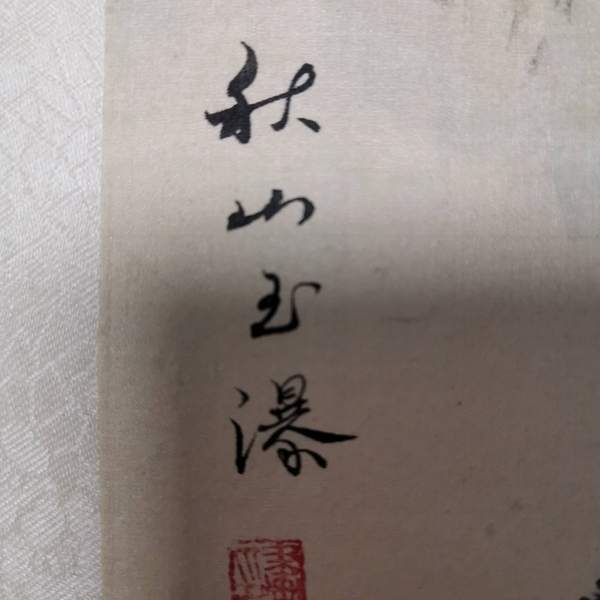 秋山玉瀑